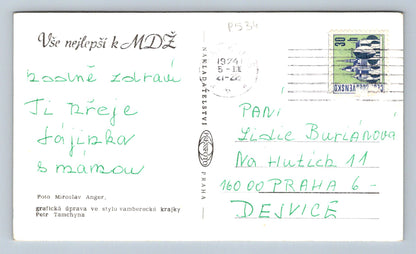 P1534
Vše nejlepší k MDŽ
1974
5-III
21-22
30
ČESKOSLOVENSKO
hodně zdraví
Ti přeje
Jájinka
s mámou
NAKLADATELSTVÍ
PRAHA
PANÍ
Lidie Buriánová
Na Hutích 11
160 00 PRAHA 6 -
DEJVICE
Foto Miroslav Anger,
grafická úprava ve stylu vamberecké krajky
Petr Tamchyna